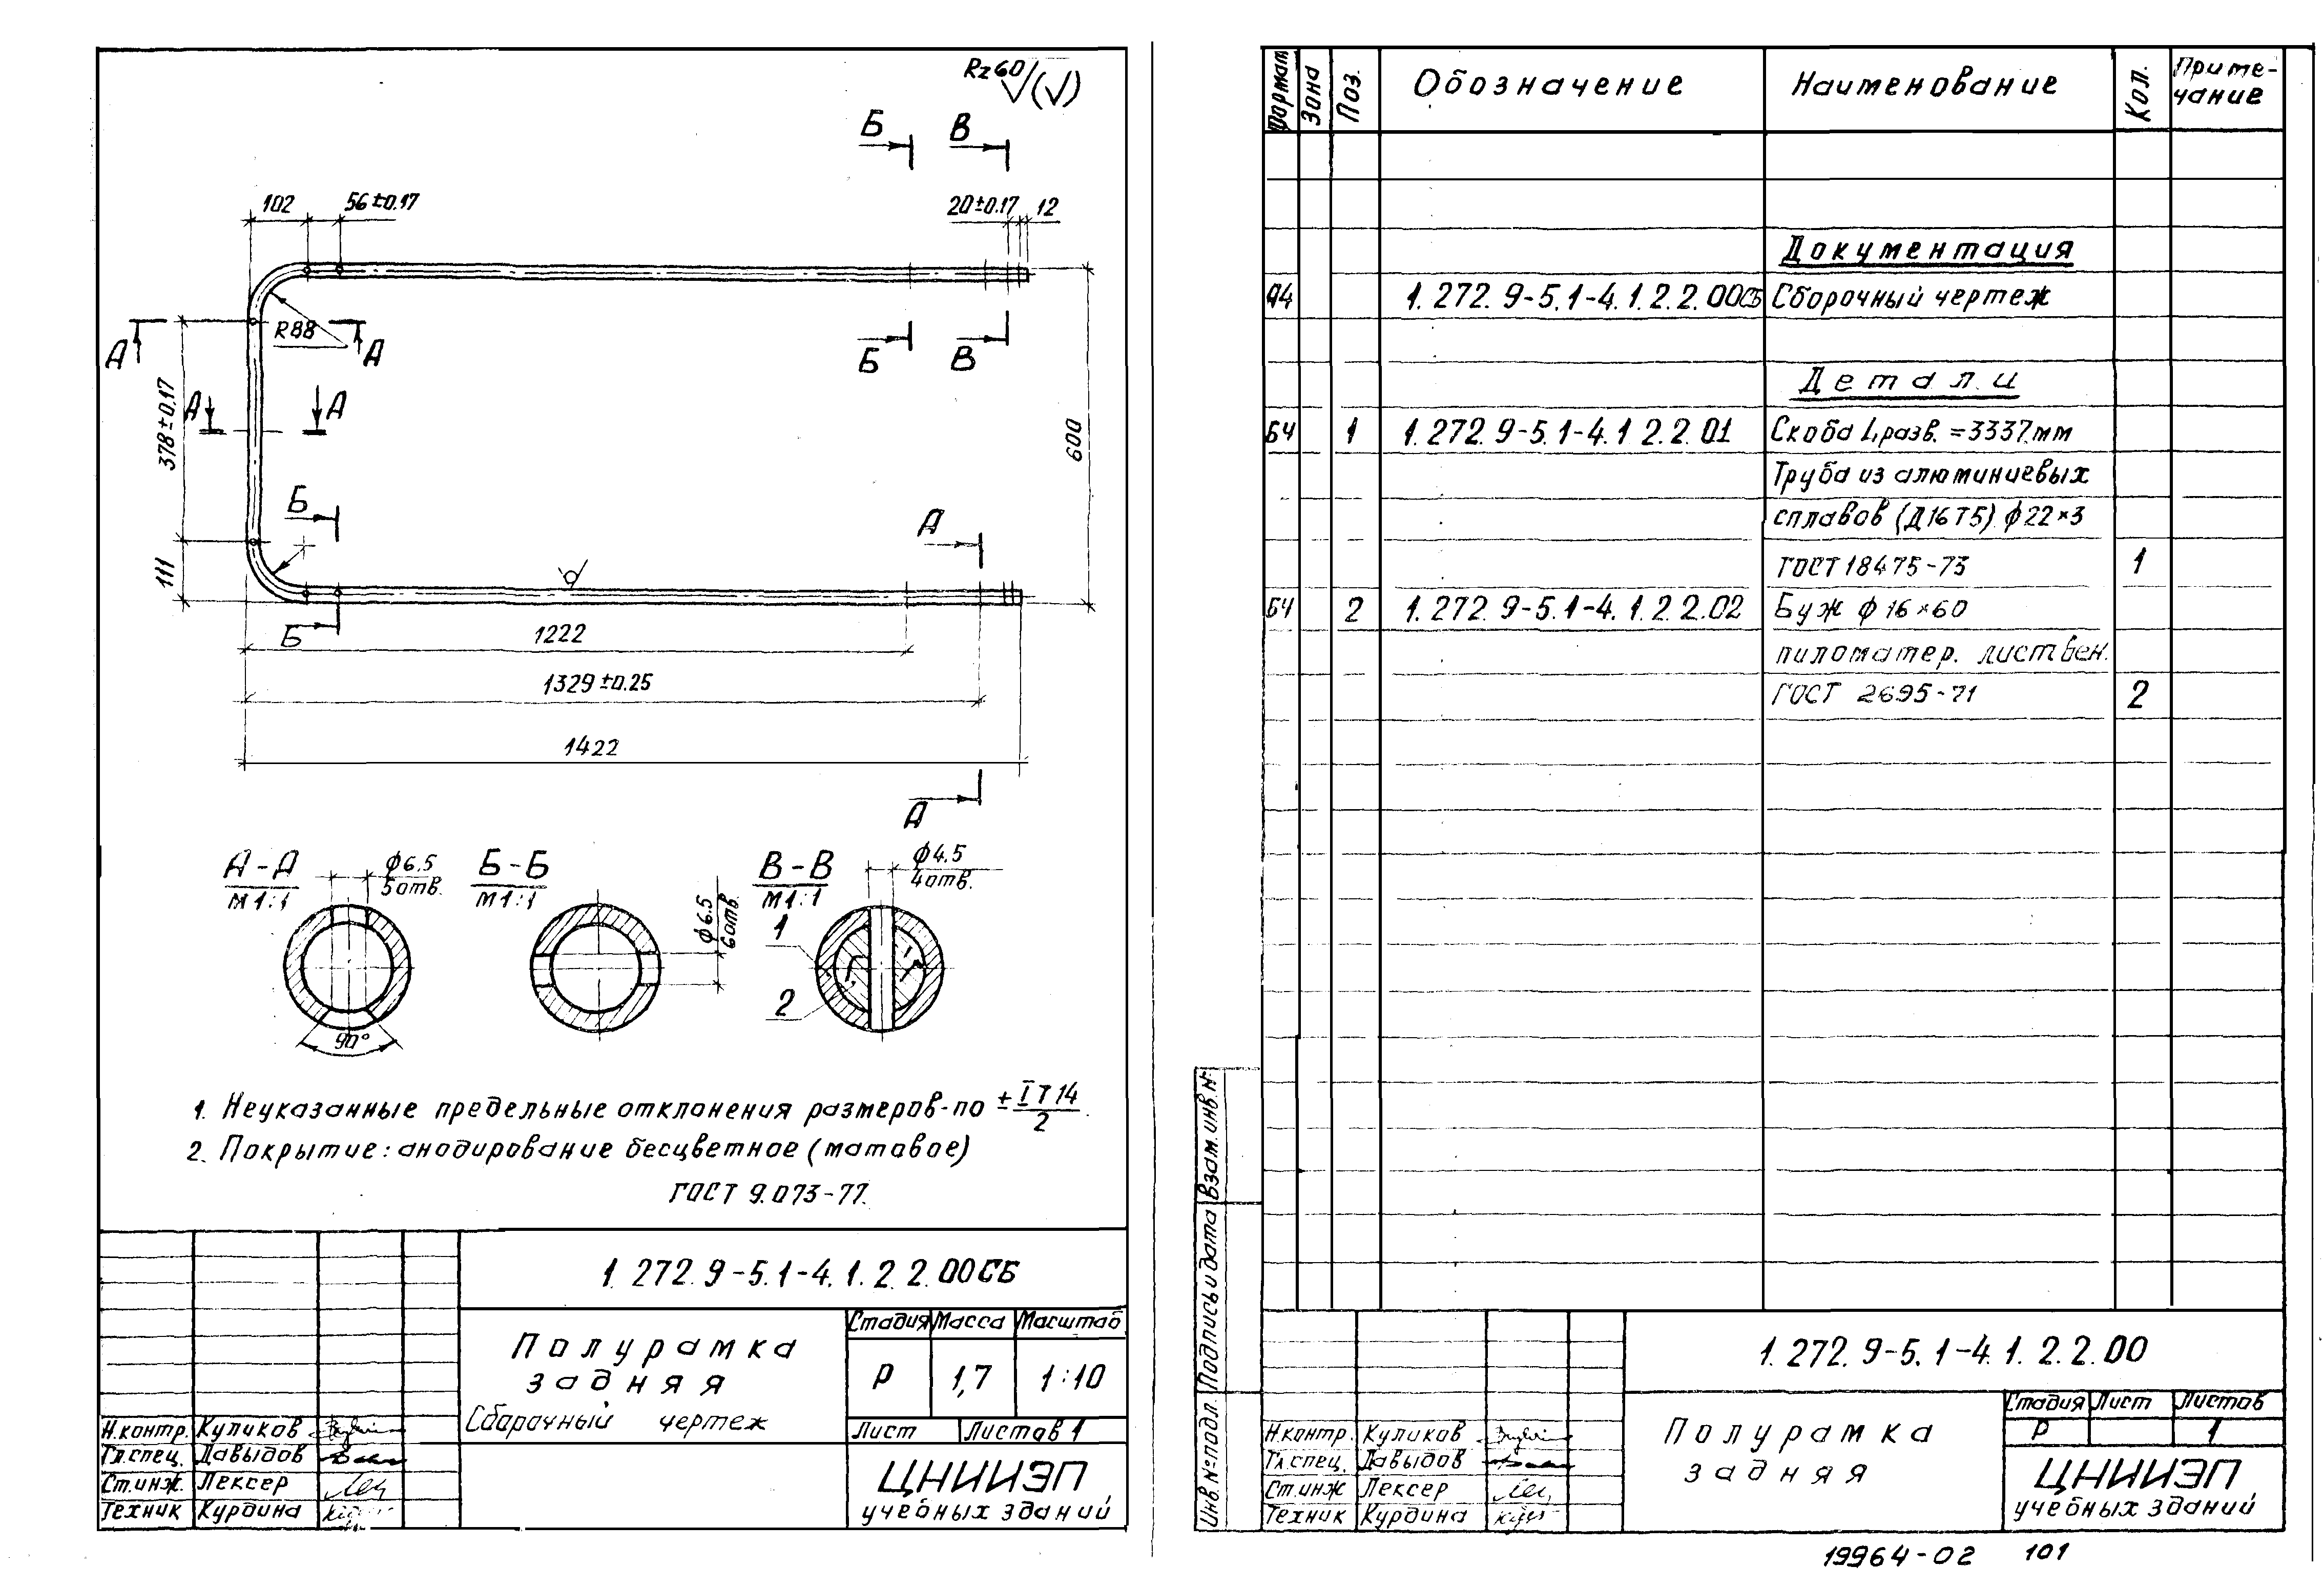 Rz60 (√)
Б В
102 56±0.17 20±0.17 12
R88
А А
Б В
378±0.17
А А
600
Б
А
111
Б
1222
1329±0.25
1422
А
А-А
М1:1
ϕ6.5
5отв.
Б-Б
М1:1
ϕ6.5
6отв.
В-В
М1:1
ϕ4.5
4отв.
1
2
90°
1. Неуказанные предельные отклонения размеров-по ± IT14/2.
2. Покрытие: анодирование бесцветное (матовое)
ГОСТ 9.073-77.
1.272.9-5.1-4.1.2.2.00СБ
Полурамка
задняя
Сборочный чертеж
Стадия Масса Масштаб
Р 1,7 1:10
Лист Листов 1
Н.контр. Куликов
Гл.спец. Давыдов
Ст.инж. Лексер
Техник Курдина
ЦНИИЭП
учебных зданий
Формат Зона Поз. Обозначение Наименование Кол. Приме-
чание
Документация
А4 1.272.9-5.1-4.1.2.2.00СБ Сборочный чертеж
Детали
БЧ 1 1.272.9-5.1-4.1 2.2.01 Скоба Lразв.=3337мм
Труба из алюминиевых
сплавов (Д16Т5) ϕ22×3
ГОСТ 18475-73 1
БЧ 2 1.272.9-5.1-4.1.2.2.02 Буж ϕ16×60
пиломатер. листвен.
ГОСТ 2695-71 2
Инв.№подл. Подпись и дата Взам.инв.№
1.272.9-5.1-4.1.2.2.00
Полурамка
задняя
Стадия Лист Листов
Р 1
Н.контр. Куликов
Гл.спец. Давыдов
Ст.инж Лексер
Техник Курдина
ЦНИИЭП
учебных зданий
19964-02 101